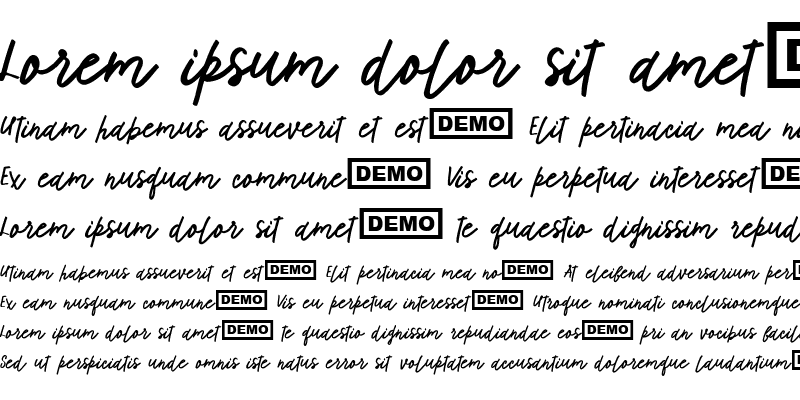 Lorem ipsum dolor sit amet
Utinam habemus assueverit et est DEMO Elit pertinacia mea no
Ex eam nusquam commune DEMO Vis eu perpetua interesset DE
Lorem ipsum dolor sit amet DEMO te quaestio dignissim repud
Utinam habemus assueverit et est DEMO Elit pertinacia mea no DEMO At eleifend adversarium per
Ex eam nusquam commune DEMO Vis eu perpetua interesset DEMO Utroque nominati conclusionemque
Lorem ipsum dolor sit amet DEMO te quaestio dignissim repudiandae eos DEMO pri an vocibus facil
Sed ut perspiciatis unde omnis iste natus error sit voluptatem accusantium doloremque laudantium